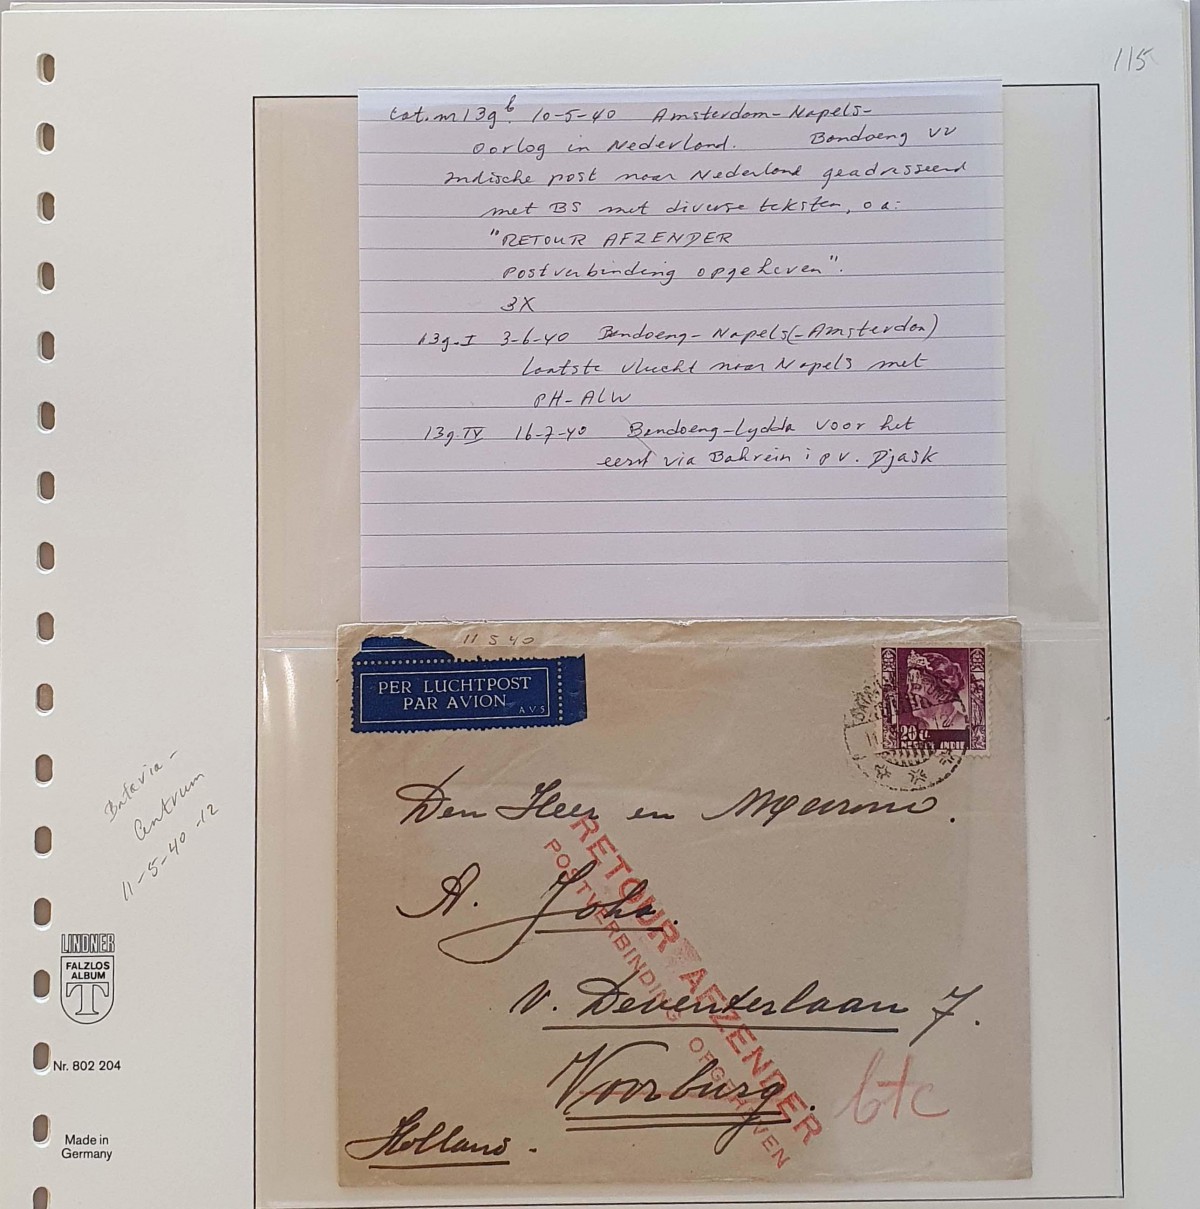 115
cat. nr 13g b. 10-5-40 Amsterdam-Napels-
Oorlog in Nederland. Bandoeng vv
Indische post naar Nederland geadresseerd
met BS met diverse teksten, o.a:
"RETOUR AFZENDER
Postverbinding opgeheven".
3X
13g-I 3-6-40 Bandoeng-Napels(-Amsterdam)
laatste vlucht naar Napels met
PH-ALW
13g-IV 16-7-40 Bandoeng-Lydda voor het
eerst via Bahrein i p v. Djask
11 5 40
PER LUCHTPOST
PAR AVION
AVS
20 ct.
NED. INDIE
Den Heer en Mevrouw.
A. Johs.
v. Deventerlaan 7.
Voorburg.
Holland.
RETOUR AFZENDER
POSTVERBINDING OPGEHEVEN
btc
Batavia-
Centrum
11-5-40-12
LINDNER
FALZLOS
ALBUM
T
Nr. 802 204
Made in
Germany